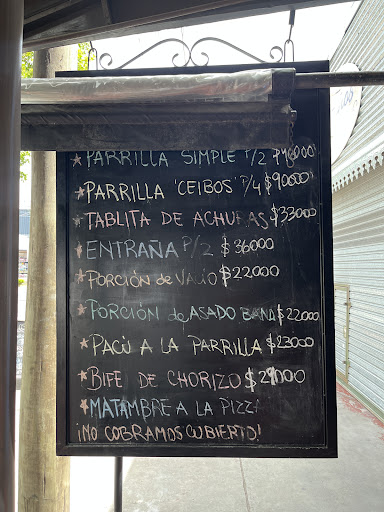 * PARRILLA SIMPLE P/2 $46000
* PARRILLA 'CEIBOS' P/4 $90000
* TABLITA DE ACHURAS $33000
* ENTRAÑA P/2 $36000
* PORCIÓN de VACIO $22.000
* PORCIÓN de ASADO BANA $22.000
* PACÚ A LA PARRILLA $23000
* BIFE DE CHORIZO $21000
* MATAMBRE A LA PIZZA
¡NO COBRAMOS CUBIERTO!